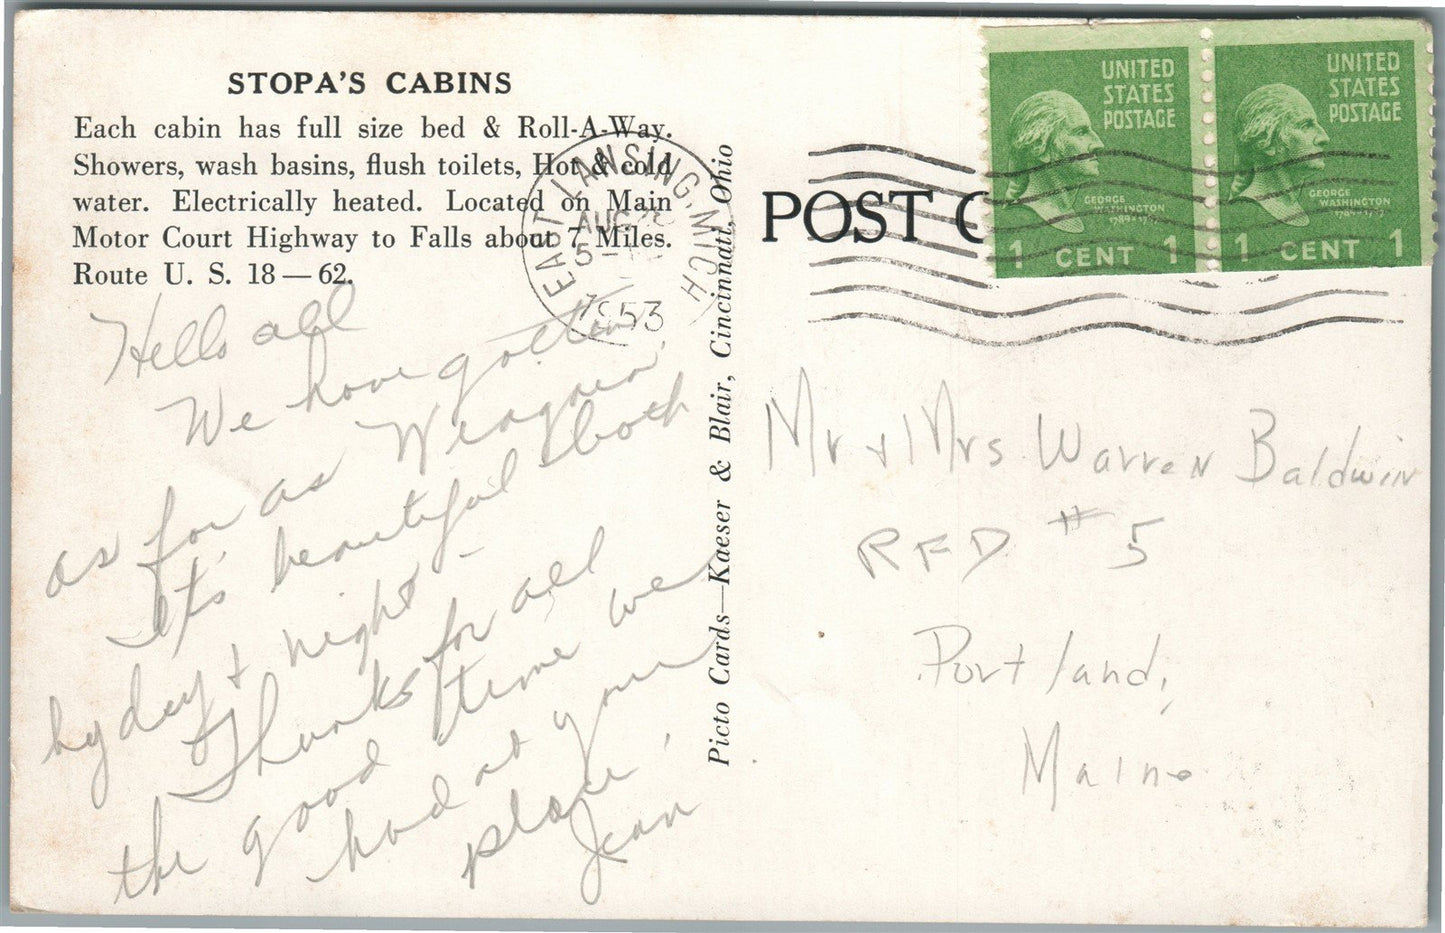 STOPA'S CABINS
Each cabin has full size bed & Roll-A-Way.
Showers, wash basins, flush toilets, Hot & cold
water. Electrically heated. Located on Main
Motor Court Highway to Falls about 7 Miles.
Route U. S. 18 — 62.
Hello all
We have gotten
as far as
It's beautiful both
by day & night -
Thanks for all
the good time we
had at your
place,
Jean
Picto Cards—Kaeser & Blair, Cincinnati, Ohio
EAST LANSING, MICH
AUG
5-
1953
POST C
UNITED
STATES
POSTAGE
GEORGE
WASHINGTON
1789-1797
1 CENT 1
UNITED
STATES
POSTAGE
GEORGE
WASHINGTON
1789-1797
1 CENT 1
Mr & Mrs Warren Baldwin
RFD #5
Portland,
Maine